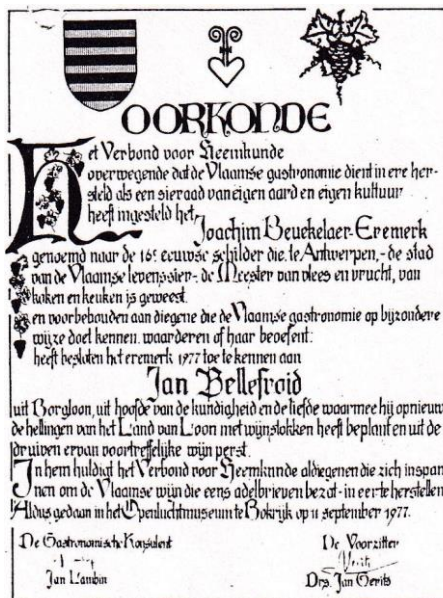 OORKONDE
Het Verbond voor Heemkunde
overwegende dat de Vlaamse gastronomie dient in ere her-
steld als een sieraad van eigen aard en eigen kultuur
heeft ingesteld het
Joachim Beuckelaer-Eremerk
genoemd naar de 16e eeuwse schilder die te Antwerpen,- de stad
van de Vlaamse levenssier-, de Meester van vlees en vrucht, van
koken en keuken is geweest.
en voorbehouden aan diegene die de Vlaamse gastronomie op bijzondere
wijze doet kennen, waarderen of haar beoefent:
heeft besloten het eremerk 1977 toe te kennen aan
Jan Bellefroid
uit Borgloon, uit hoofde van de kundigheid en de liefde waarmee hij opnieuw
de hellingen van het Land van Loon met wijnstokken heeft beplant en uit de
druiven ervan voortreffelijke wijn perst.
In hem huldigt het Verbond voor Heemkunde al diegenen die zich inspan
nen om de Vlaamse wijn die eens adelbrieven bezat - in eer te herstellen
Aldus gedaan in het Openluchtmuseum te Bokrijk op 11 september 1977.
De Gastronomische Konsulent De Voorzitter
Jan Lambin Drs. Jan Gerits